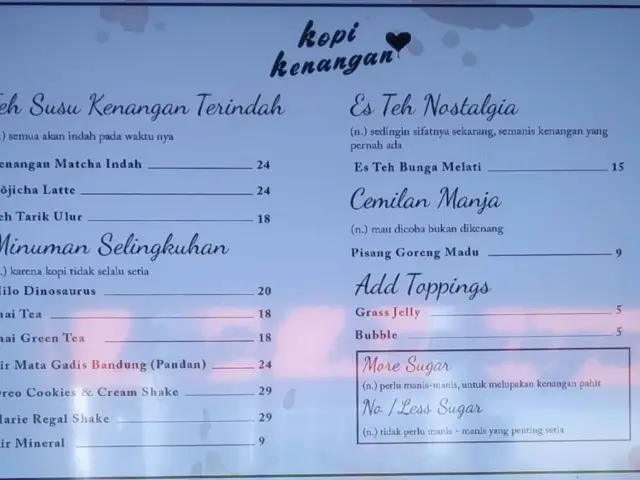 kopi
kenangan
eh Susu Kenangan Terindah
.) semua akan indah pada waktu nya
enangan Matcha Indah 24
ōjicha Latte 24
eh Tarik Ulur 18
Minuman Selingkuhan
.) karena kopi tidak selalu setia
ilo Dinosaurus 20
hai Tea 18
hai Green Tea 18
ir Mata Gadis Bandung (Pandan) 24
reo Cookies & Cream Shake 29
arie Regal Shake 29
ir Mineral 9
Es Teh Nostalgia
(n.) sedingin sifatnya sekarang, semanis kenangan yang
pernah ada
Es Teh Bunga Melati 15
Cemilan Manja
(n.) mau dicoba bukan dikenang
Pisang Goreng Madu 9
Add Toppings
Grass Jelly 5
Bubble 5
More Sugar
(n.) perlu manis-manis, untuk melupakan kenangan pahit
No / Less Sugar
(n.) tidak perlu manis - manis yang penting setia